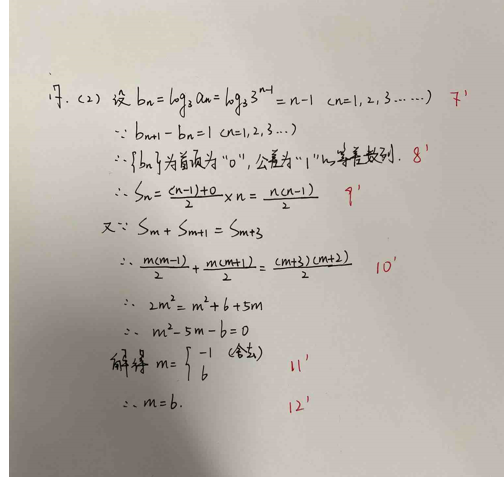 17. (2) 设 bn=log₃an=log₃3ⁿ⁻¹=n-1 (n=1,2,3……) 7'
∵ bn+1-bn=1 (n=1,2,3…)
∴{bn}为首项为"0",公差为"1"的等差数列. 8'
∴ Sn=\frac{(n-1)+0}{2}×n=\frac{n(n-1)}{2} 9'
又∵ Sm+Sm+1=Sm+3
∴ \frac{m(m-1)}{2}+\frac{m(m+1)}{2}=\frac{(m+3)(m+2)}{2} 10'
∴ 2m²=m²+6+5m
∴ m²-5m-6=0
解得 m={-1 (舍去)
6 11'
∴ m=6. 12'